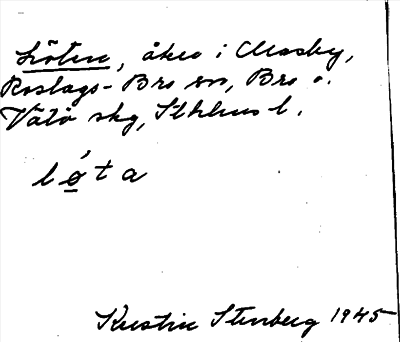 Löten, åker i Masby,
Roslags-Bro sn, Bro o.
Vätö skg, Sthlms l.
lo̱ ́ta
Kerstin Stenberg 1945